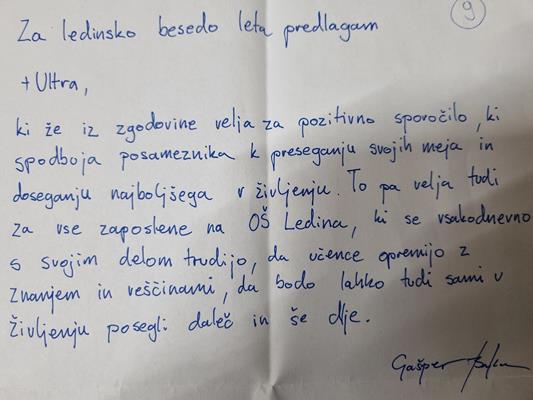 9
Za ledinsko besedo leta predlagam
+Ultra,
ki že iz zgodovine velja za pozitivno sporočilo, ki
spodboja posameznika k preseganju svojih meja in
doseganju najboljšega v življenju. To pa velja tudi
za vse zaposlene na OŠ Ledina, ki se vsakodnevno
s svojim delom trudijo, da učence opremijo z
znanjem in veščinami, da bodo lahko tudi sami v
življenju posegli daleč in še dlje.
Gašper